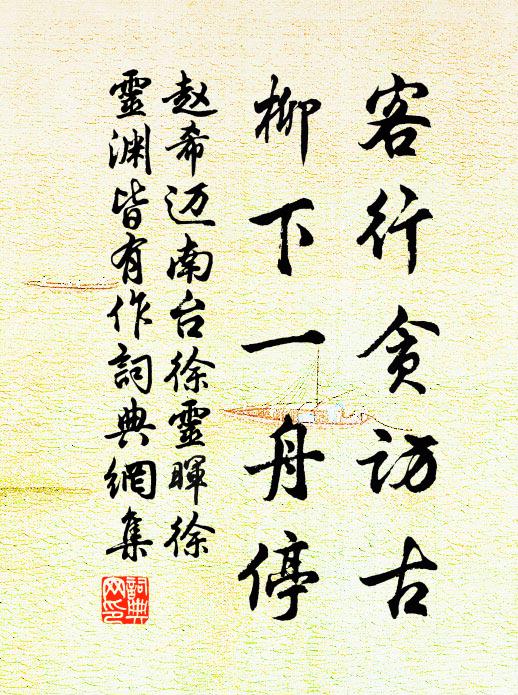 客行贪访古
柳下一舟停
赵希迈南台徐靈暉徐
靈渊皆有作詞典網集
詞典網印